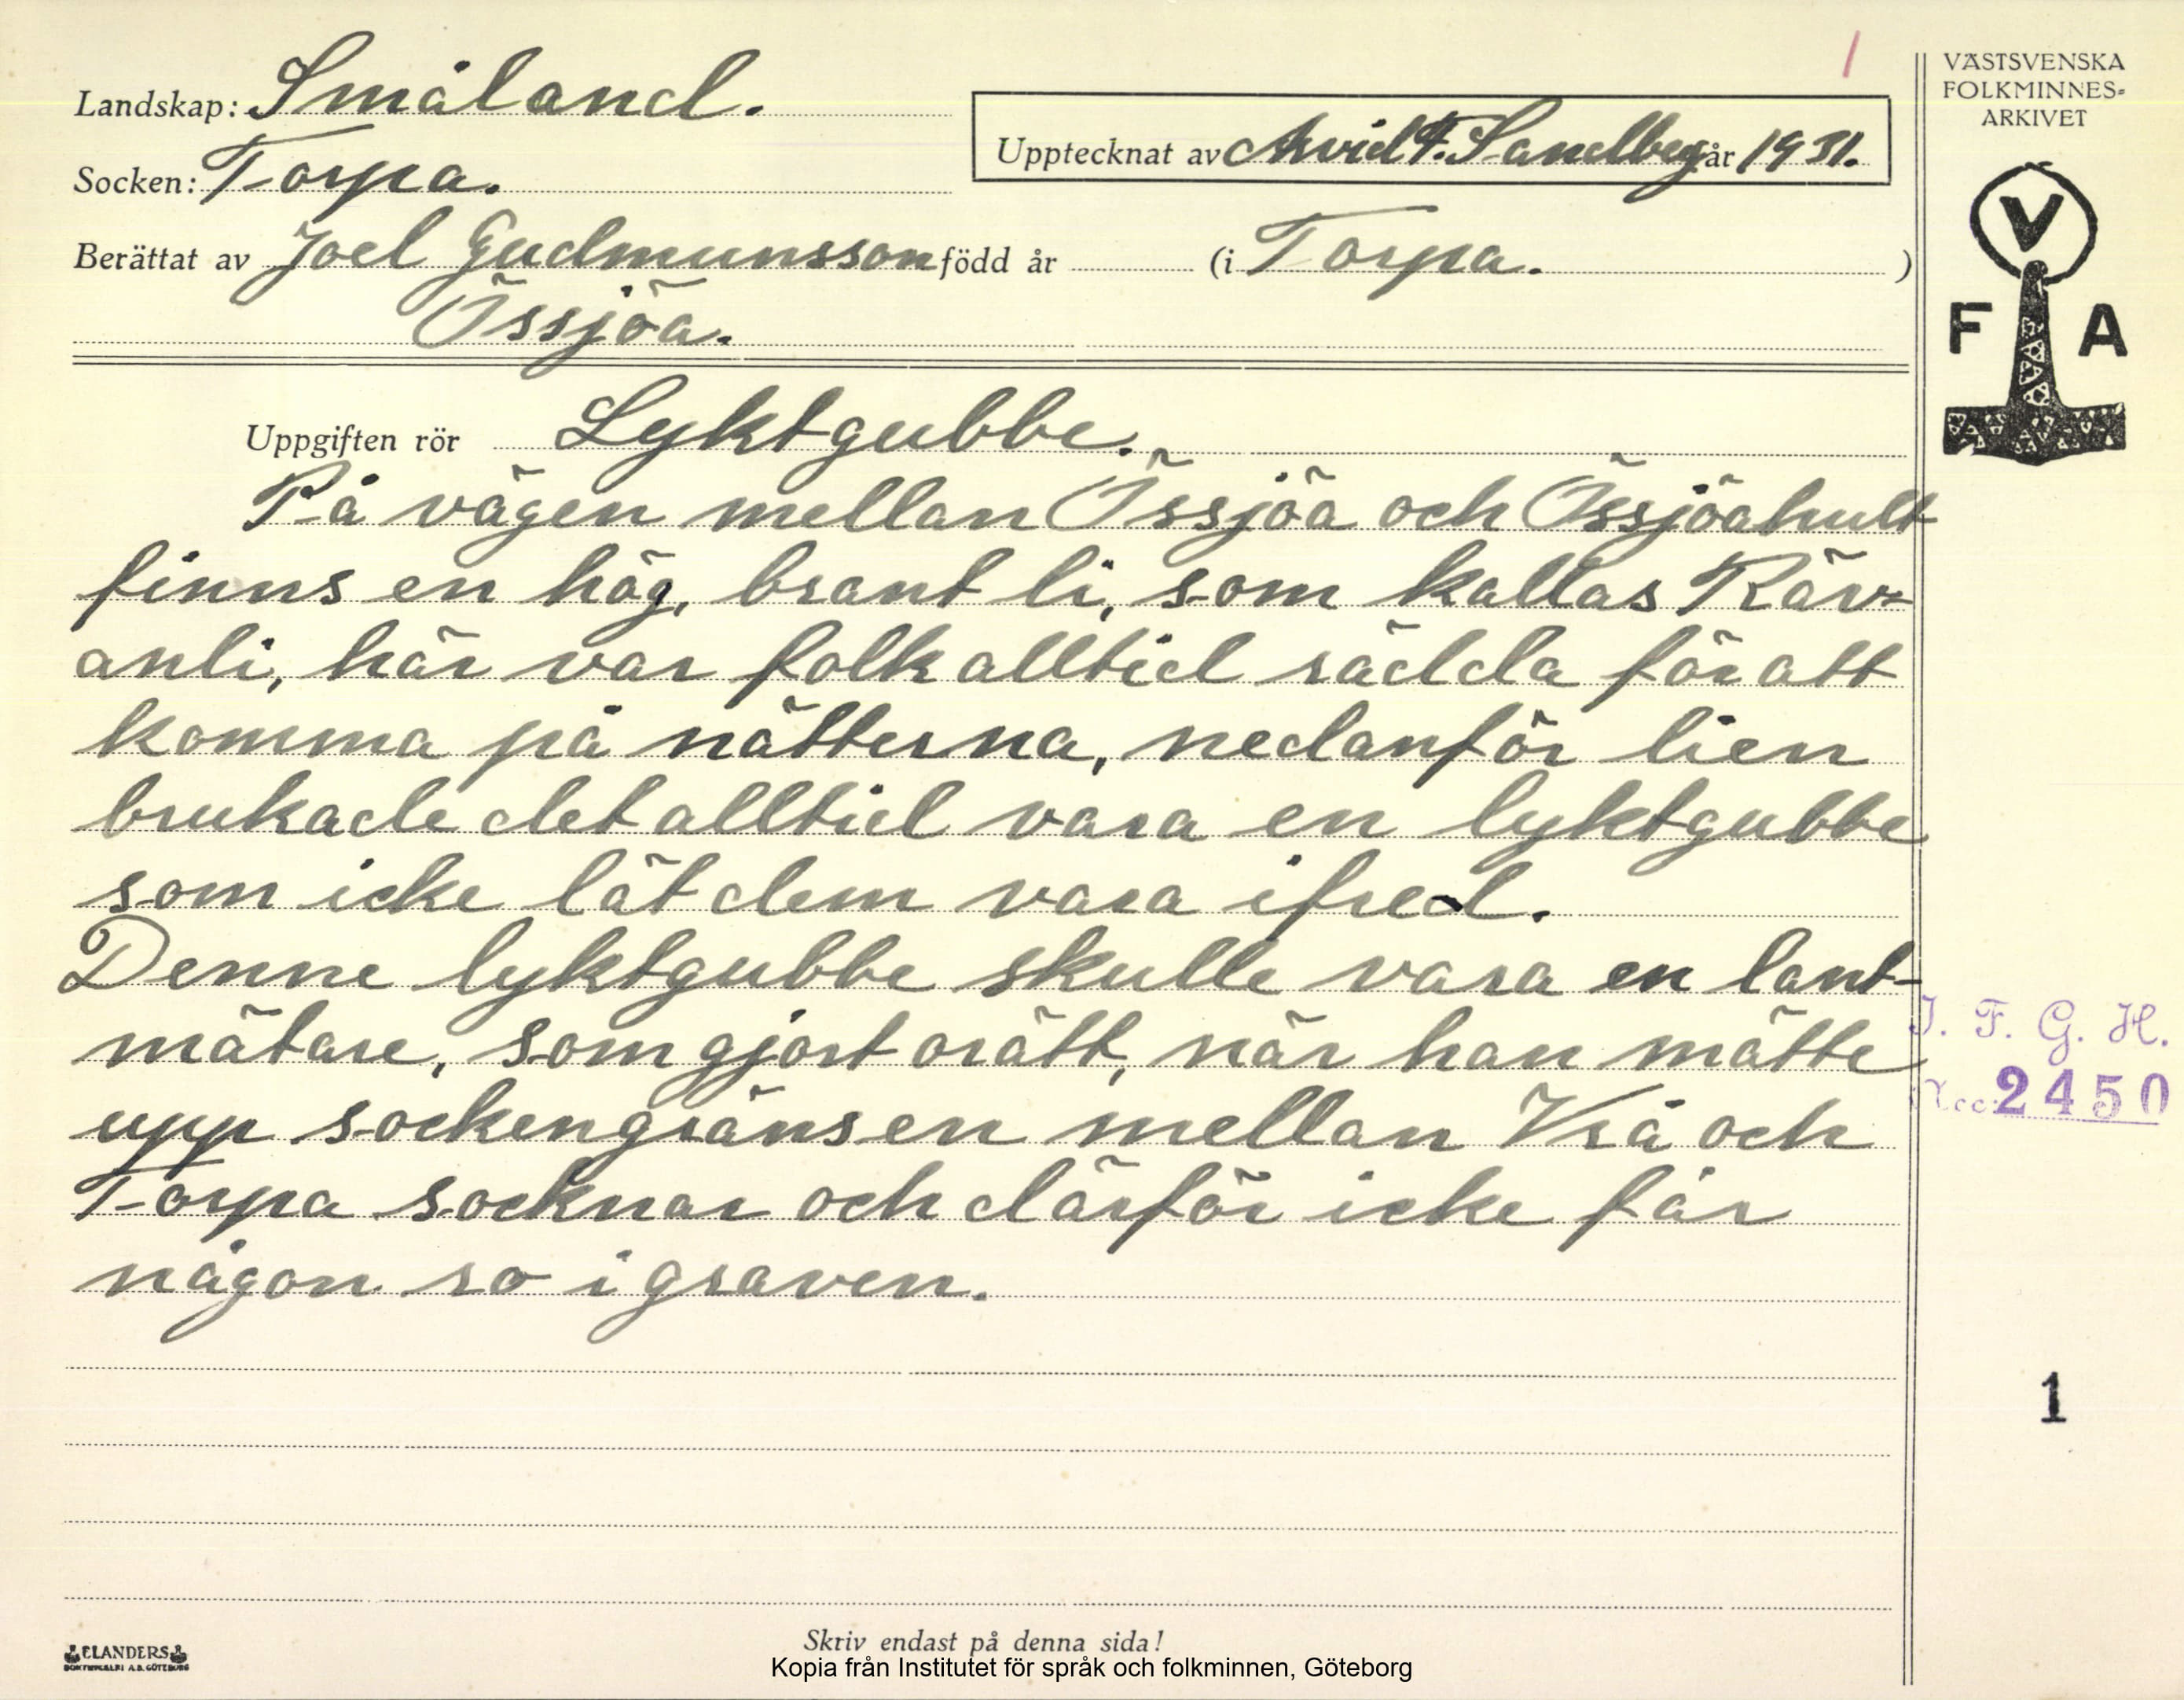 1
Landskap: Småland.
Socken: Torpa.
Upptecknat av Arvid F. Sandberg år 1931.
Berättat av Joel Gudmunsson född år (i Torpa. )
Össjöa.
VÄSTSVENSKA
FOLKMINNES-
ARKIVET
V
F A
Uppgiften rör Lyktgubbe.
På vägen mellan Össjöa och Össjöahult
finns en hög, brant li, som kallas Räv-
anli, här var folk alltid rädda för att
komma på nätterna, nedanför lien
brukade det alltid vara en lyktgubbe
som icke lät dem vara ifred.
Denne lyktgubbe skulle vara en lant-
mätare, som gjort orätt, när han mätte
upp sockengränsen mellan Vrå och
Torpa socknar och därför icke får
någon ro i graven.
I. F. G. H.
Acc: 2450
1
ELANDERS
BOKTRYCKERI A.B. GÖTEBORG
Skriv endast på denna sida!
Kopia från Institutet för språk och folkminnen, Göteborg